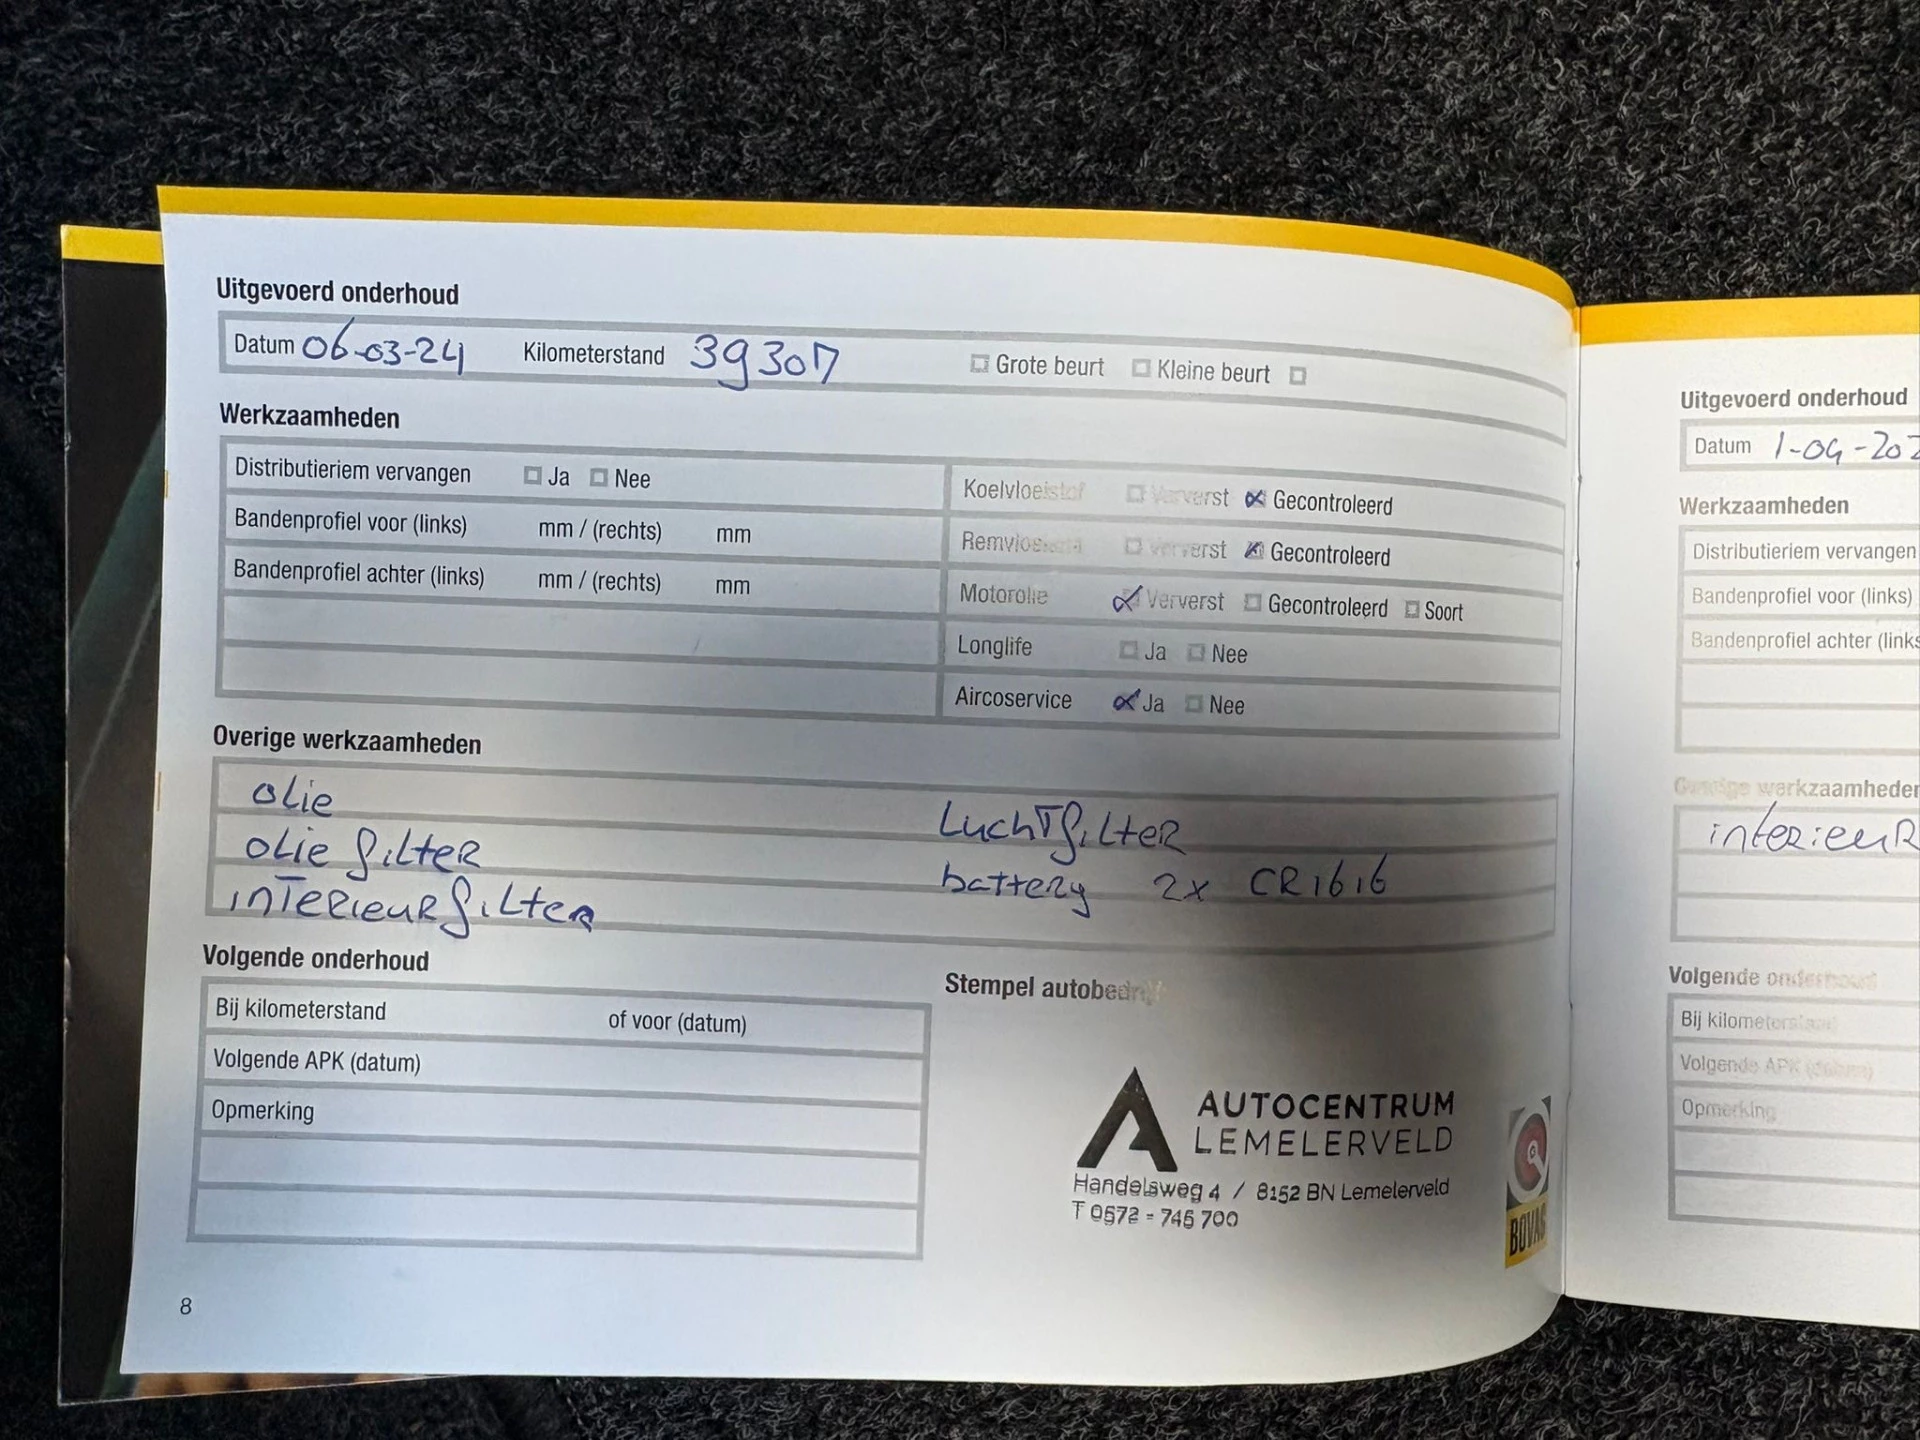 Uitgevoerd onderhoud
Datum 06-03-24 Kilometerstand 39307 Grote beurt Kleine beurt
Werkzaamheden
Distributieriem vervangen Ja Nee
Bandenprofiel voor (links) mm / (rechts) mm
Bandenprofiel achter (links) mm / (rechts) mm
Koelvloeistof Ververst Gecontroleerd
Remvloeistof Ververst Gecontroleerd
Motorolie Ververst Gecontroleerd Soort
Longlife Ja Nee
Aircoservice Ja Nee
Overige werkzaamheden
olie
olie filter
interieurfilter
Luchtfilter
battery 2x CR1616
Volgende onderhoud
Bij kilometerstand of voor (datum)
Volgende APK (datum)
Opmerking
Stempel autobedrijf
AUTOCENTRUM
LEMELERVELD
Handelsweg 4 / 8152 BN Lemelerveld
T 0572 - 745 700
BOVAG
8
Uitgevoerd onderhoud
Datum 1-04-202
Werkzaamheden
Distributieriem vervangen
Bandenprofiel voor (links)
Bandenprofiel achter (links
Overige werkzaamheden
interieur
Volgende onderhoud
Bij kilometerstand
Volgende APK (datum)
Opmerking